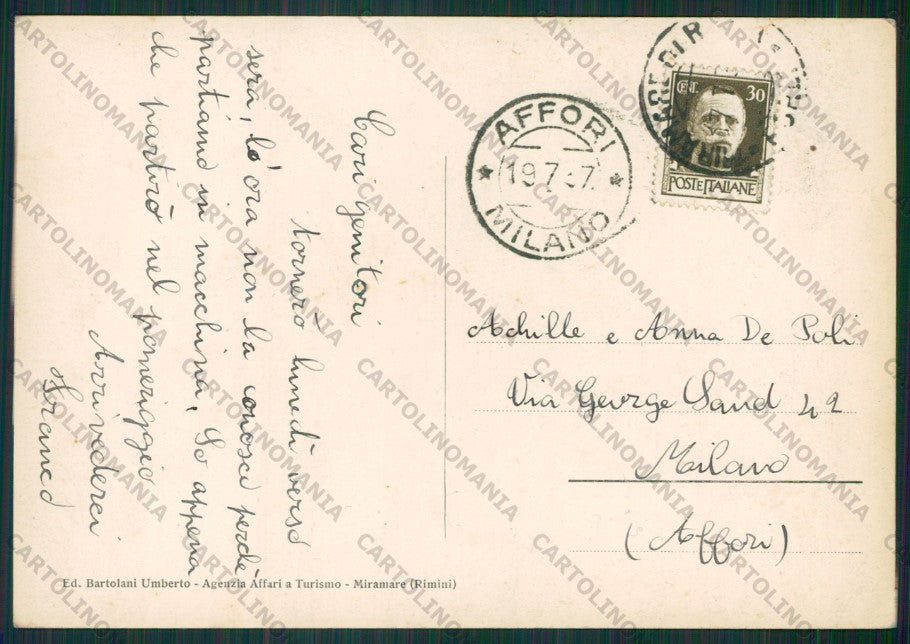 Cari genitori
tornerò lunedì verso
sera, l'ora non la conosco perchè
partiamo in macchina. So appena
che partirò nel pomeriggio
Arrivederci
AFFORI
19.7.37
MILANO
CENT. 30
POSTE ITALIANE
Achille e Anna De Poli
Via George Sand 42
Milano
(Affori)
Ed. Bartolani Umberto - Agenzia Affari a Turismo - Miramare (Rimini)
CARTOLINOMANIA